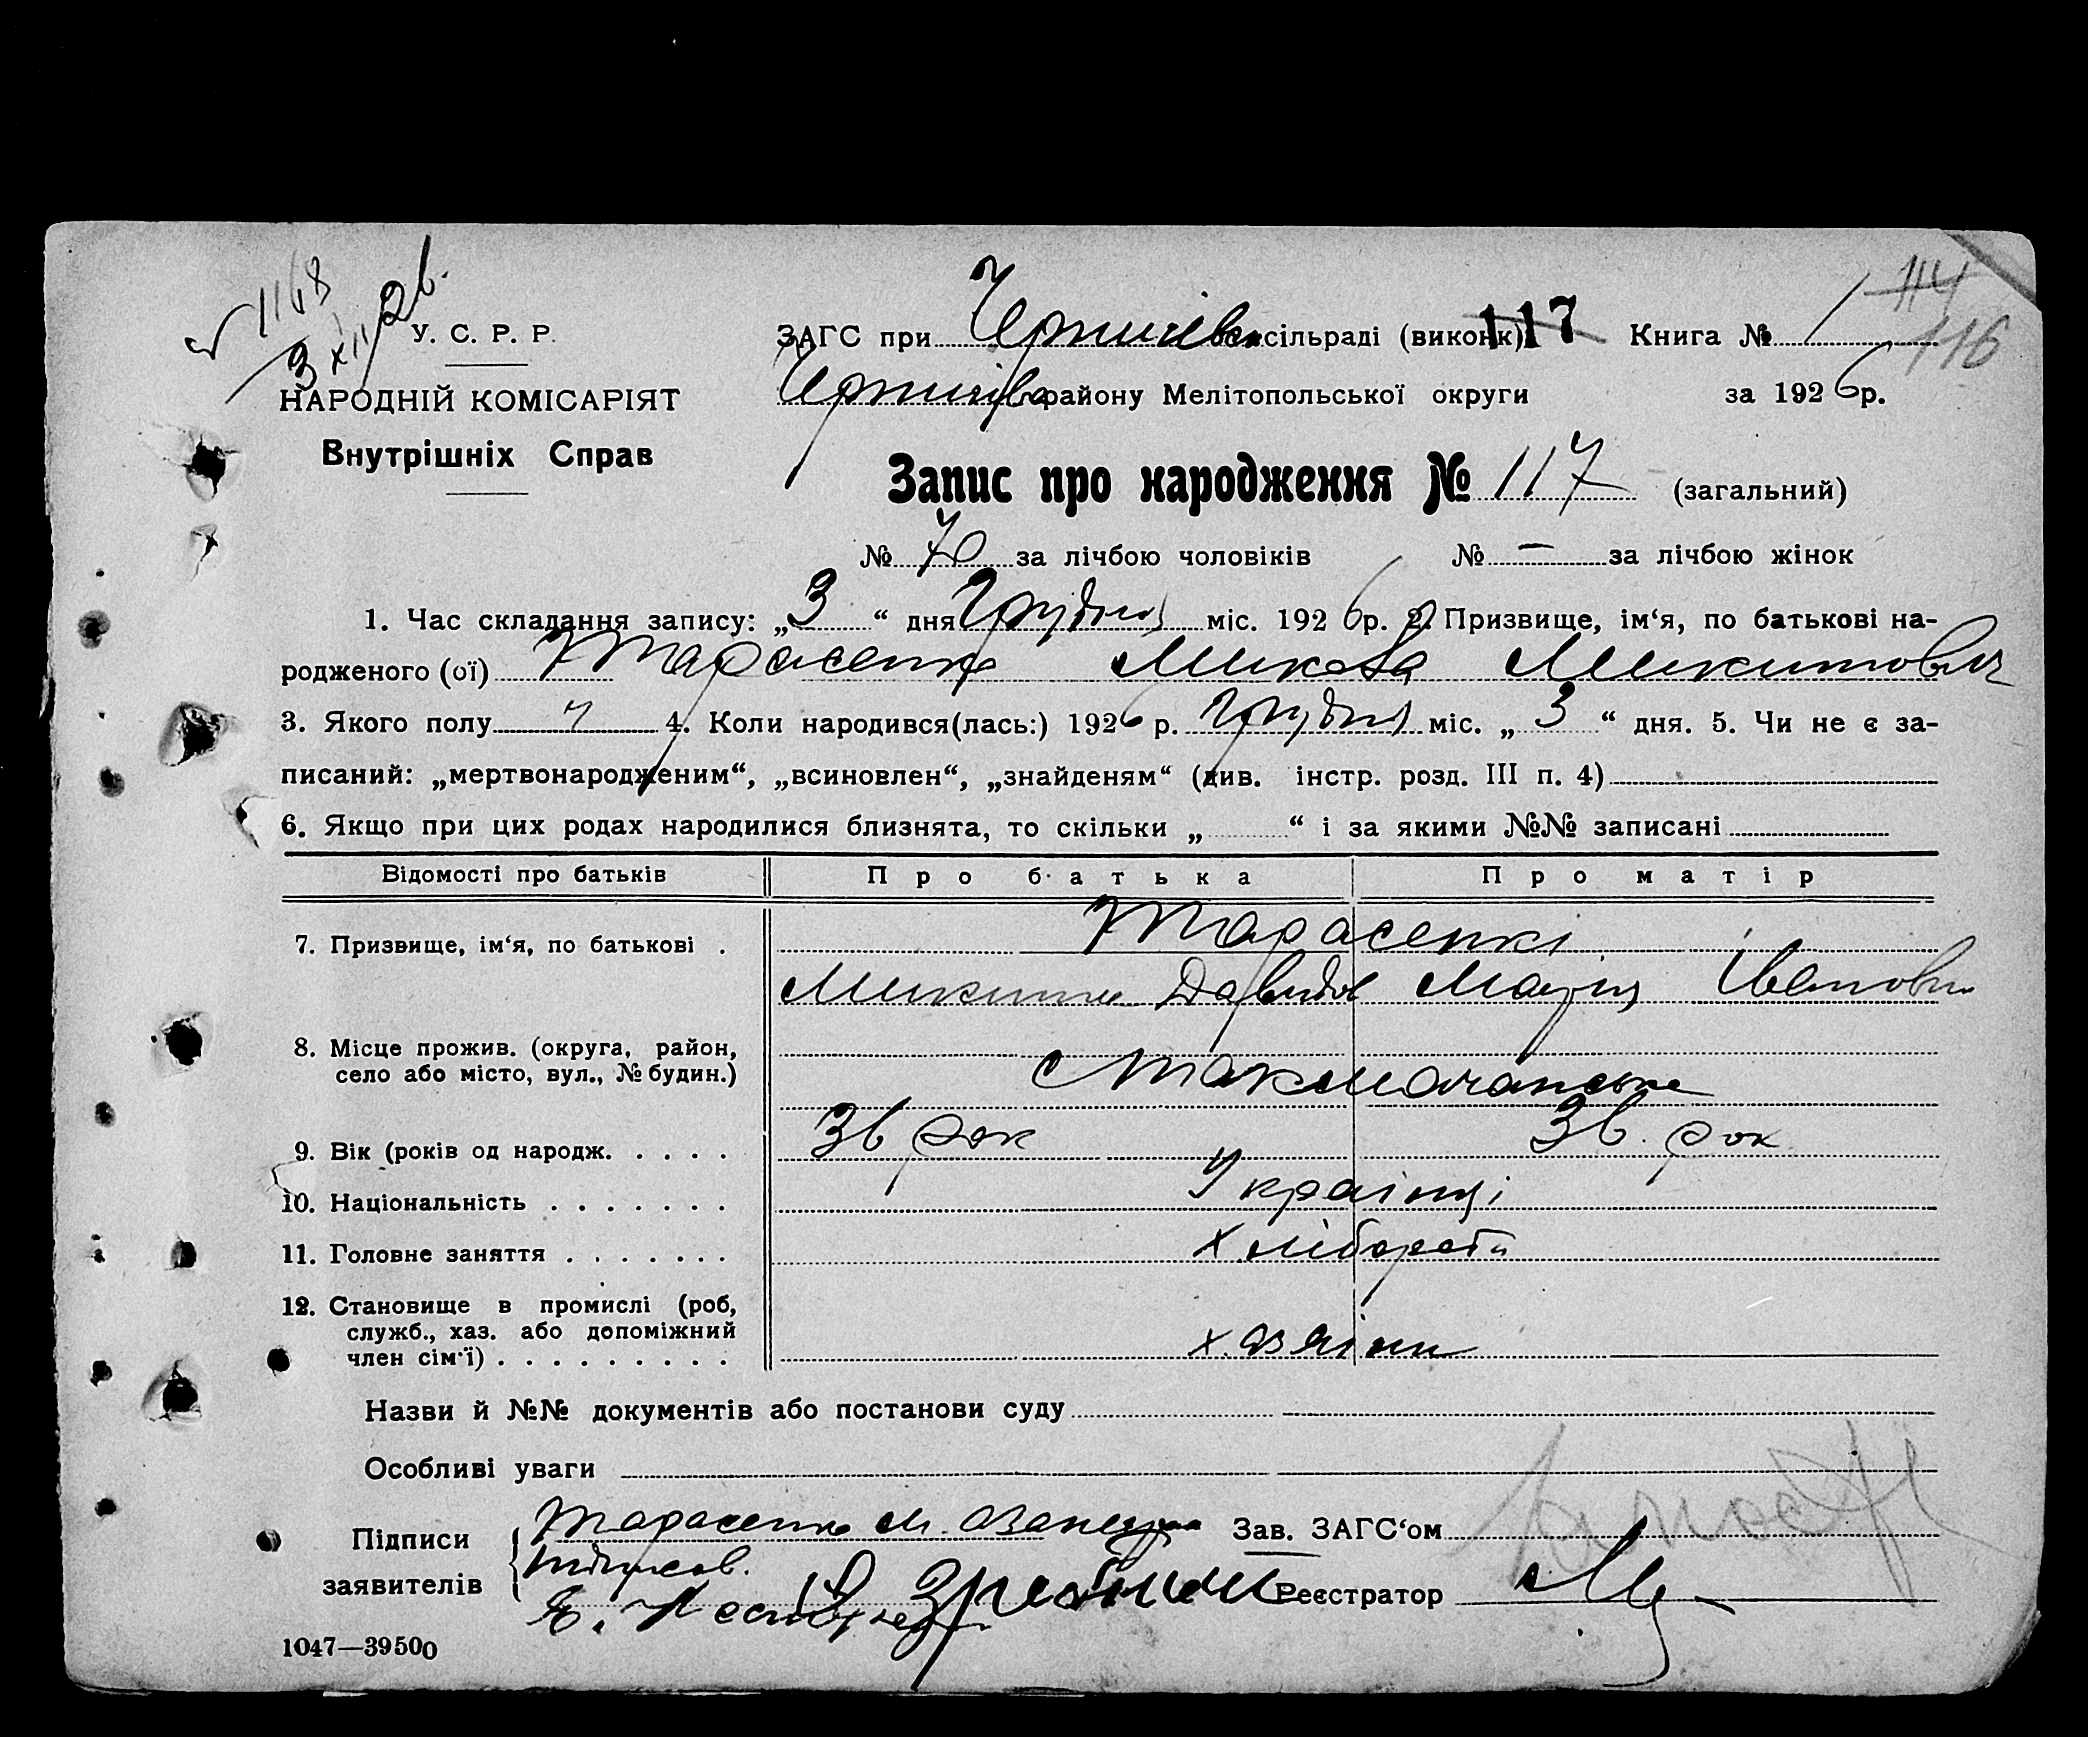 1168
3 XII 26.
У. С. Р. Р.
НАРОДНІЙ КОМІСАРІЯТ
Внутрішніх Справ
114
116
ЗАГС при сільраді (виконк) 117 Книга № 1
району Мелітопольської округи за 1926 р.
Запис про народження № 117 (загальний)
№ 70 за лічбою чоловіків № — за лічбою жінок
1. Час складання запису: „3“ дня Грудня міс. 1926 р. 2. Призвище, ім‘я, по батькові на-
родженого (ої) Тарасенко Микола Микитович
3. Якого полу ч 4. Коли народився(лась:) 1926 р. Грудня міс. „3“ дня. 5. Чи не є за-
писаний: „мертвонародженим“, „всиновлен“, „знайденям“ (див. інстр. розд. III п. 4)
6. Якщо при цих родах народилися близнята, то скільки „ “ і за якими №№ записані
Відомості про батьків Про батька Про матір
7. Призвище, ім‘я, по батькові . Тарасенкі
Микита Давидов Марія Івановна
8. Місце прожив. (округа, район,
село або місто, вул., № будин.)
9. Вік (років од народж. . . . . 36 рок 36. рок
10. Національність . . . . . . . Українці
11. Головне заняття . . . . . . . хлібороби
12. Становище в промислі (роб,
служб., хаз. або допоміжний
член сім‘ї) . . . . . . . . . хазяіни
Назви й №№ документів або постанови суду
Особливі уваги
Підписи Тарасенко М. Зав. ЗАГС‘ом
заявителів Реєстратор
1047—39500